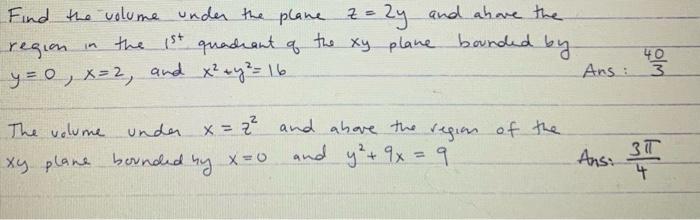 Find the volume under the plane z = 2y and above the
region in the 1st quadrant of the xy plane bounded by
y = 0, x = 2, and x² + y² = 16 Ans: 40/3
The volume under x = z² and above the region of the
xy plane bounded by x = 0 and y² + 9x = 9 Ans: 3π/4